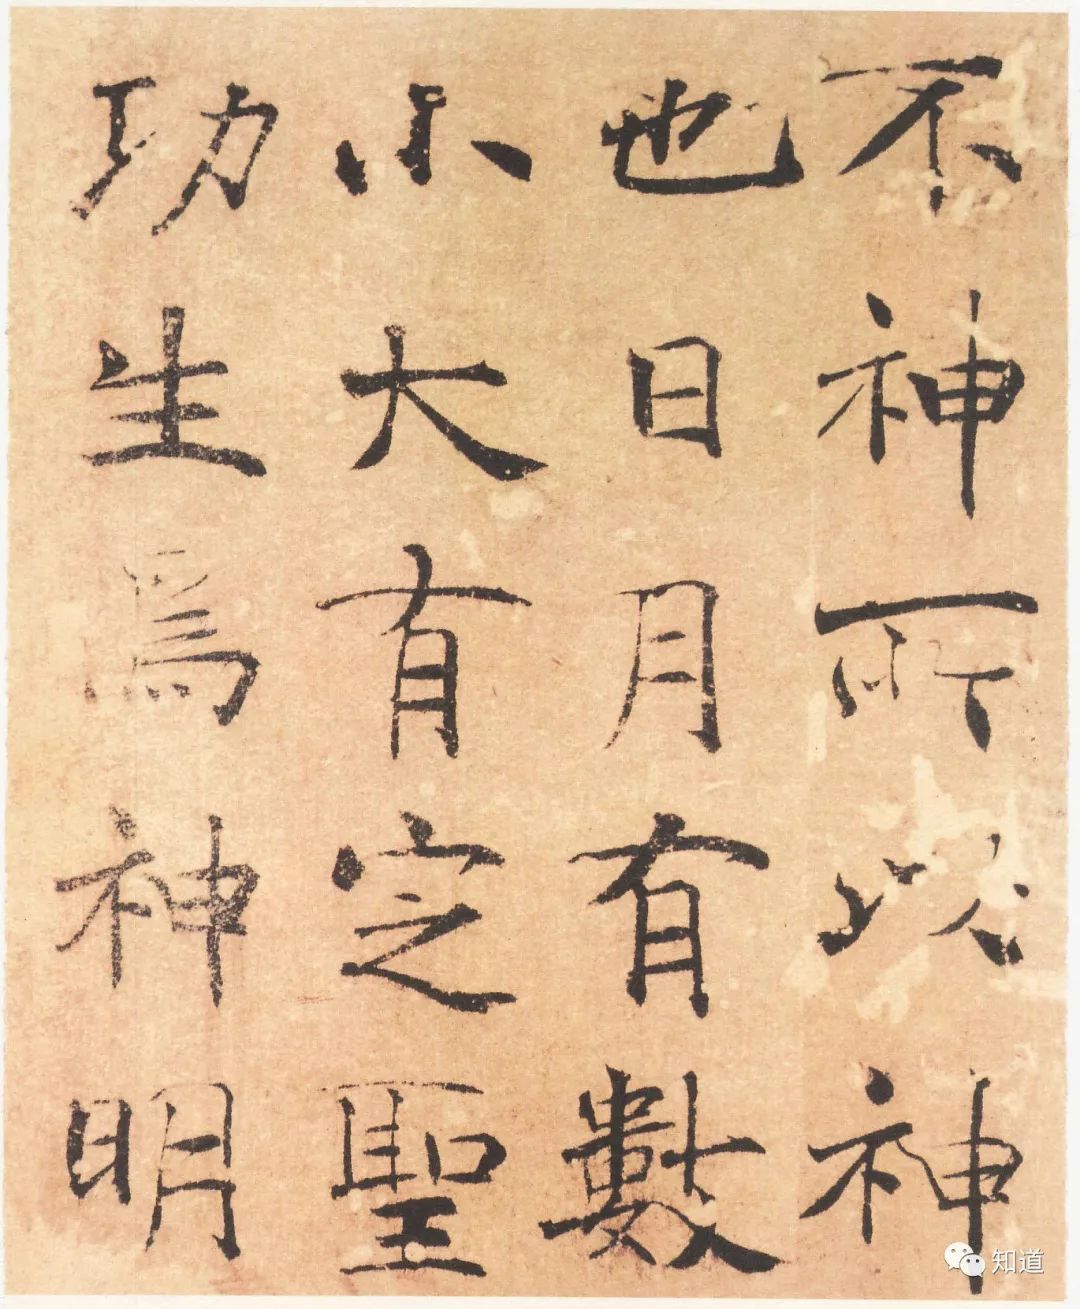 不神所以神
也日月有數
小大有定聖
功生焉神明
知道